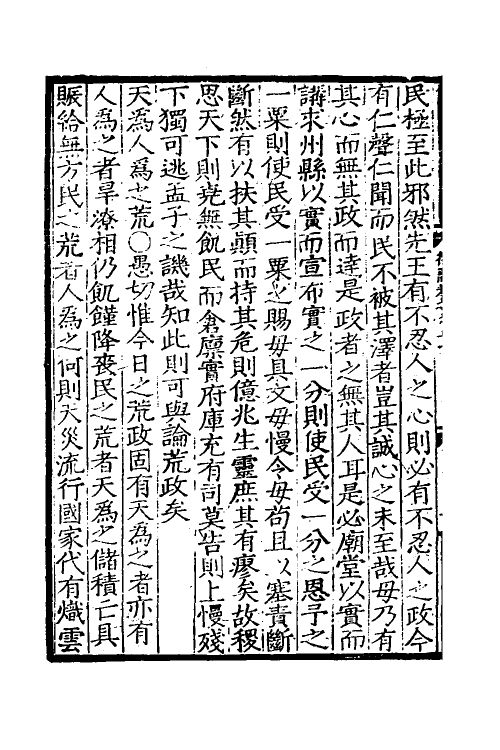 民極至此邪然先王有不忍人之心則必有不忍人之政今
有仁聲仁聞而民不被其澤者豈其誠心之未至哉毋乃有
其心而無其政而達是政者之無其人耳是必廟堂以實而
講求州縣以實而宣布實之一分則使民受一分之恩予之
一粟則使民受一粟之賜毋具文毋慢令毋苟且以塞責斷
斷然有以扶其顛而持其危則億兆生靈庶其有瘳矣故稷
思天下則堯無飢民而倉廩實府庫充有司莫告則上慢殘
下獨可逃孟子之譏哉知此則可與論荒政矣
天為人為之荒〇愚切惟今日之荒政固有天為之者亦有
人為之者旱潦相仍飢饉降喪民之荒者天為之儲積亡具
賑給無方民之荒者人為之何則天災流行國家代有熾雲